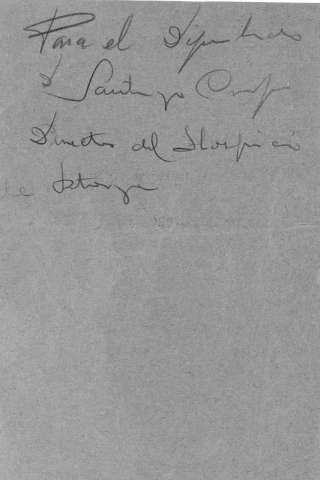 Para el Diputado
D Santiago Crespo
Director del Hospicio
de Astorga